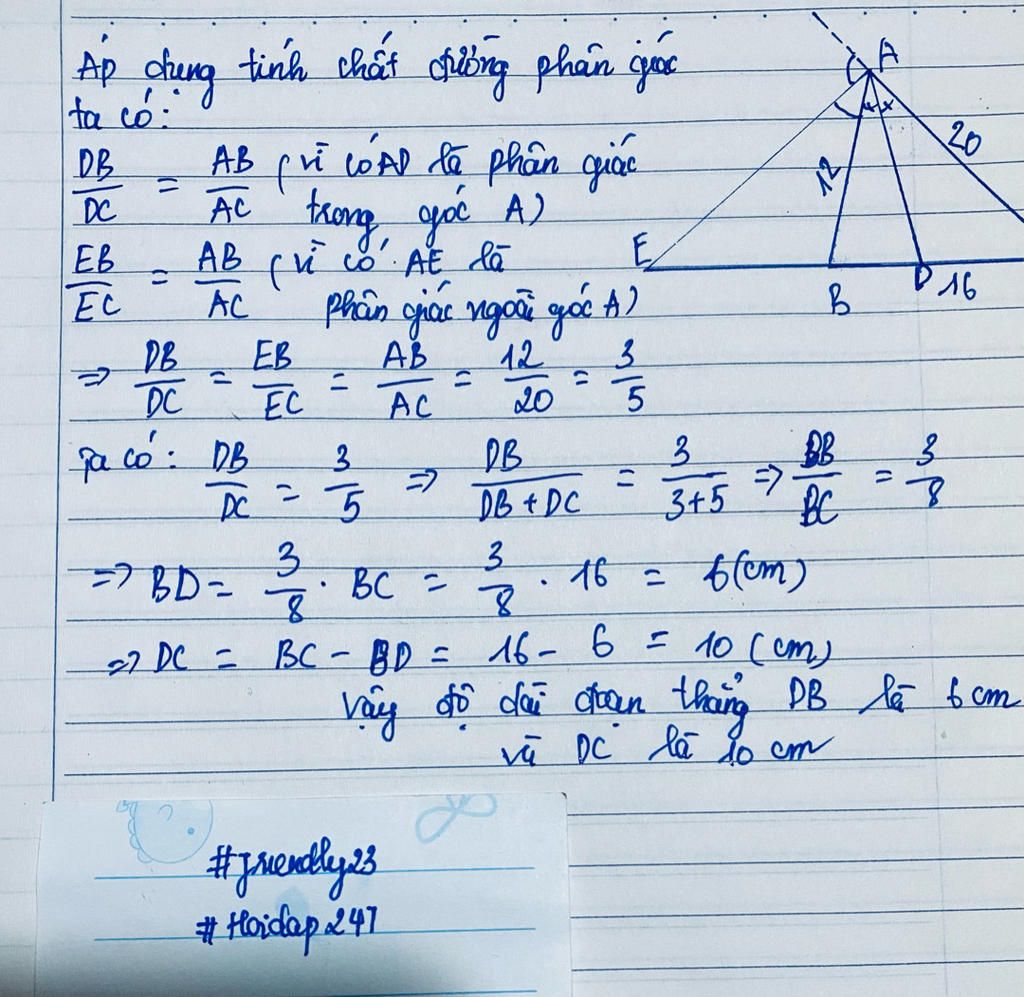 Áp dụng tính chất đường phân giác
ta có:
DB/DC = AB/AC (vì có AD là phân giác
trong góc A)
EB/EC = AB/AC (vì có AE là
phân giác ngoài góc A)
=> DB/DC = EB/EC = AB/AC = 12/20 = 3/5
Ta có: DB/DC = 3/5 => DB/DB + DC = 3/3+5 => DB/BC = 3/8
=> BD = 3/8 . BC = 3/8 . 16 = 6 (cm)
=> DC = BC - BD = 16 - 6 = 10 (cm)
Vậy độ dài đoạn thẳng DB là 6 cm
và DC là 10 cm
A
12
20
E
B
D
16
#friendly23
#Hoidap247